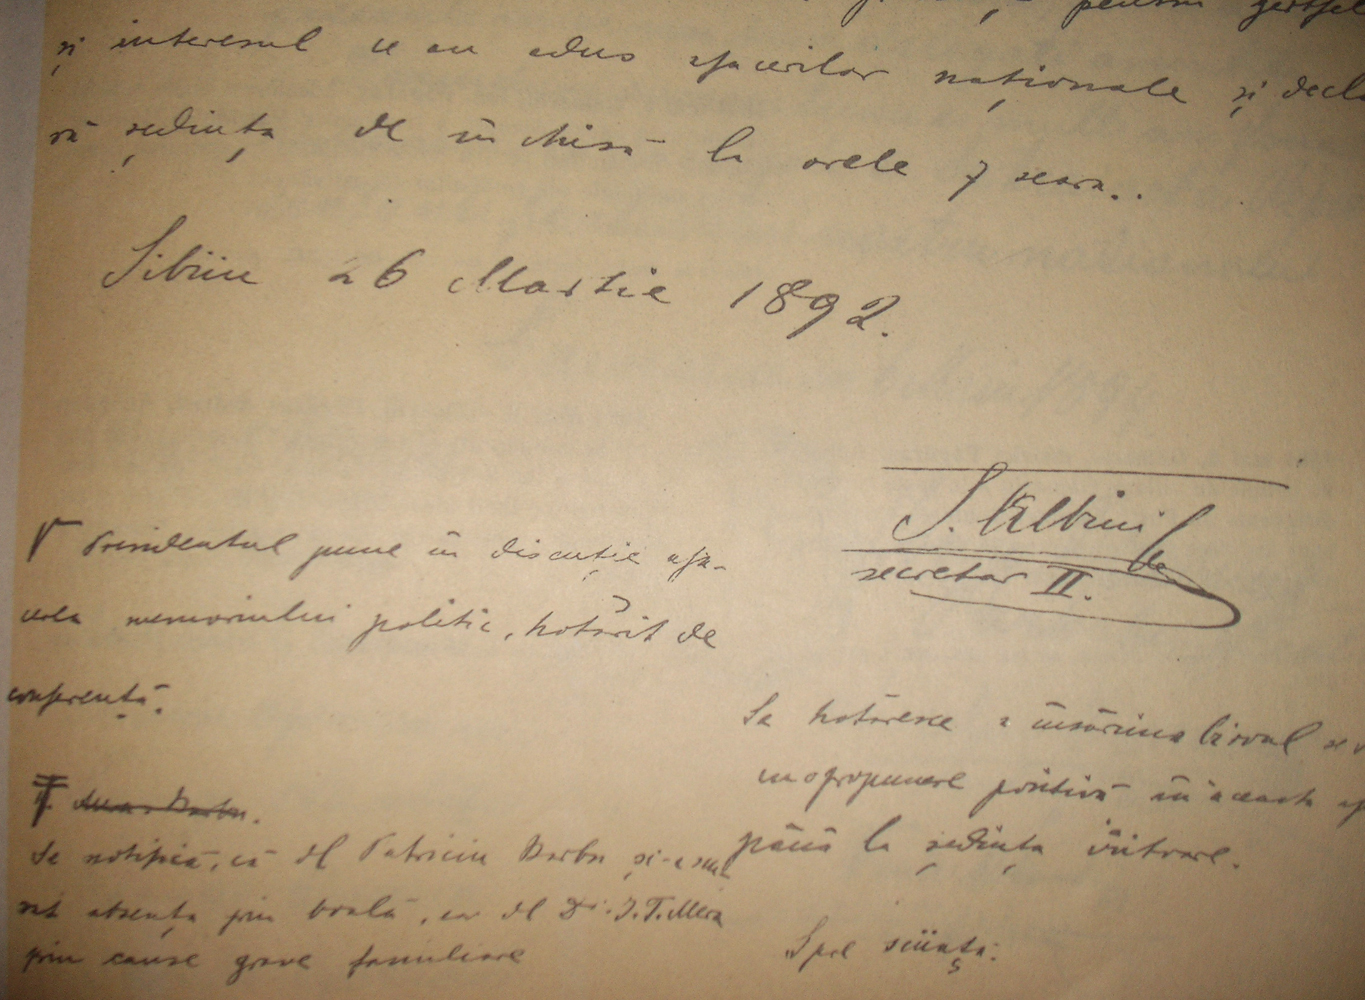 pentru jertfel
și interesul ce au adus afacerilor naționale și decla
ră ședința de închisă la orele 7 seara..
Sibiiu 26 Martie 1892.
S. Albini
secretar II.
V Presidentul pune în discuție afa-
cerea memoriului politic, hotărît de
conferență.
Se hotăresce a însărcina biroul se v
cu o propunere positivă în aceasta af
până la ședința viitoare.
Se notifică, că dl Patriciu Barbu și-a scu
sat absența prin boală, ear dl Dr. I. T. Mera
prin cause grave familiare
Spre sciință: